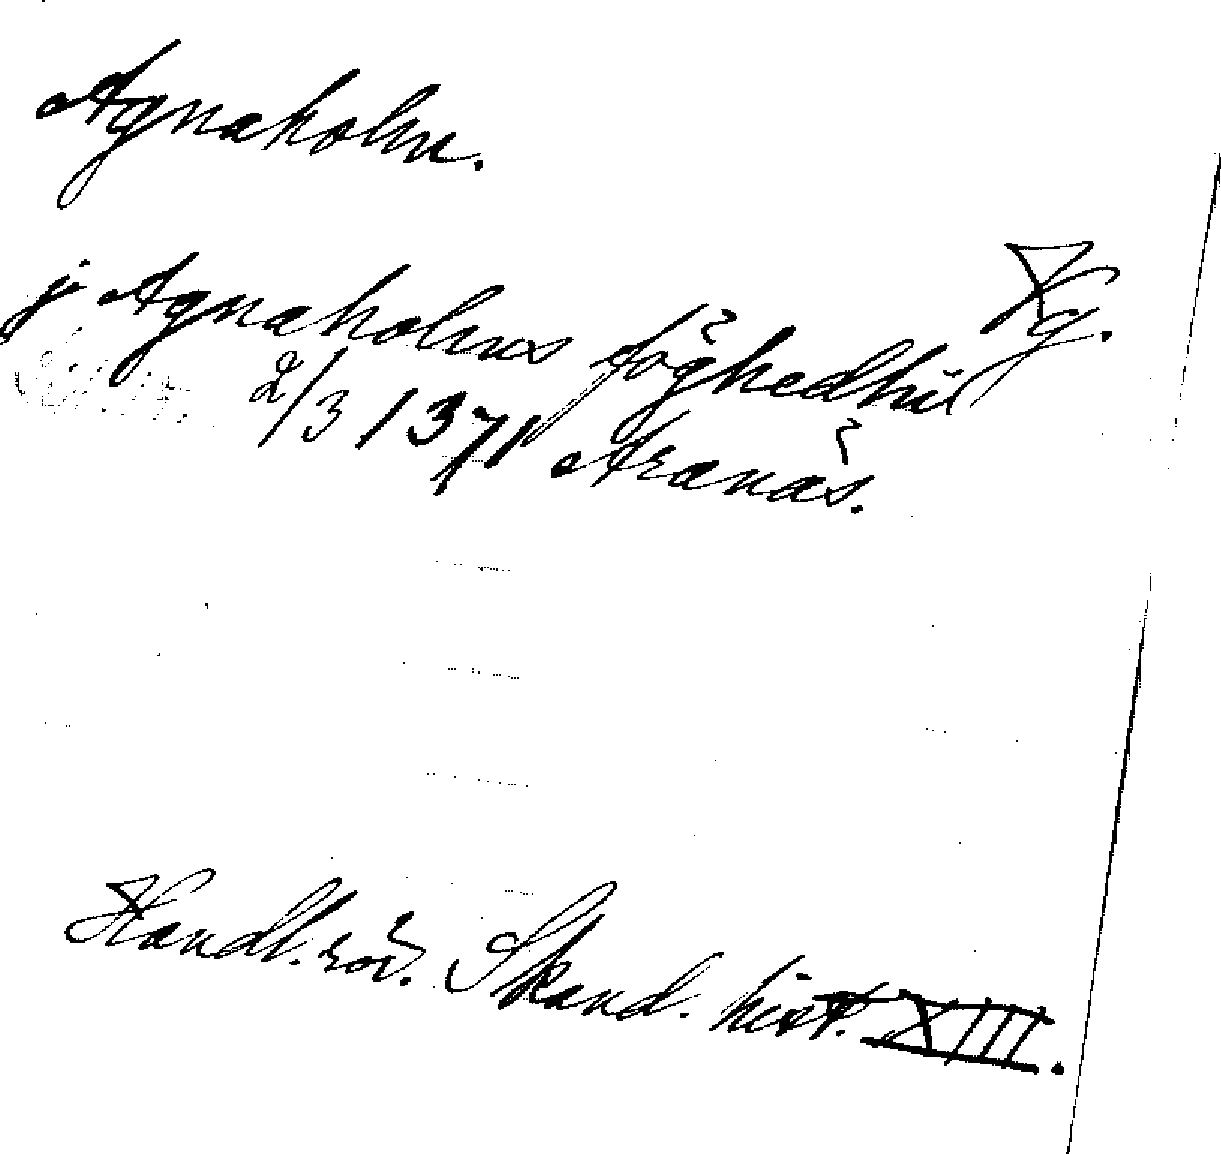 Agnaholm.
Hg.
j Agnaholms föghedhii
2/3 1371 Aranäs.
Handl. rör. Skand. hist. XIII.